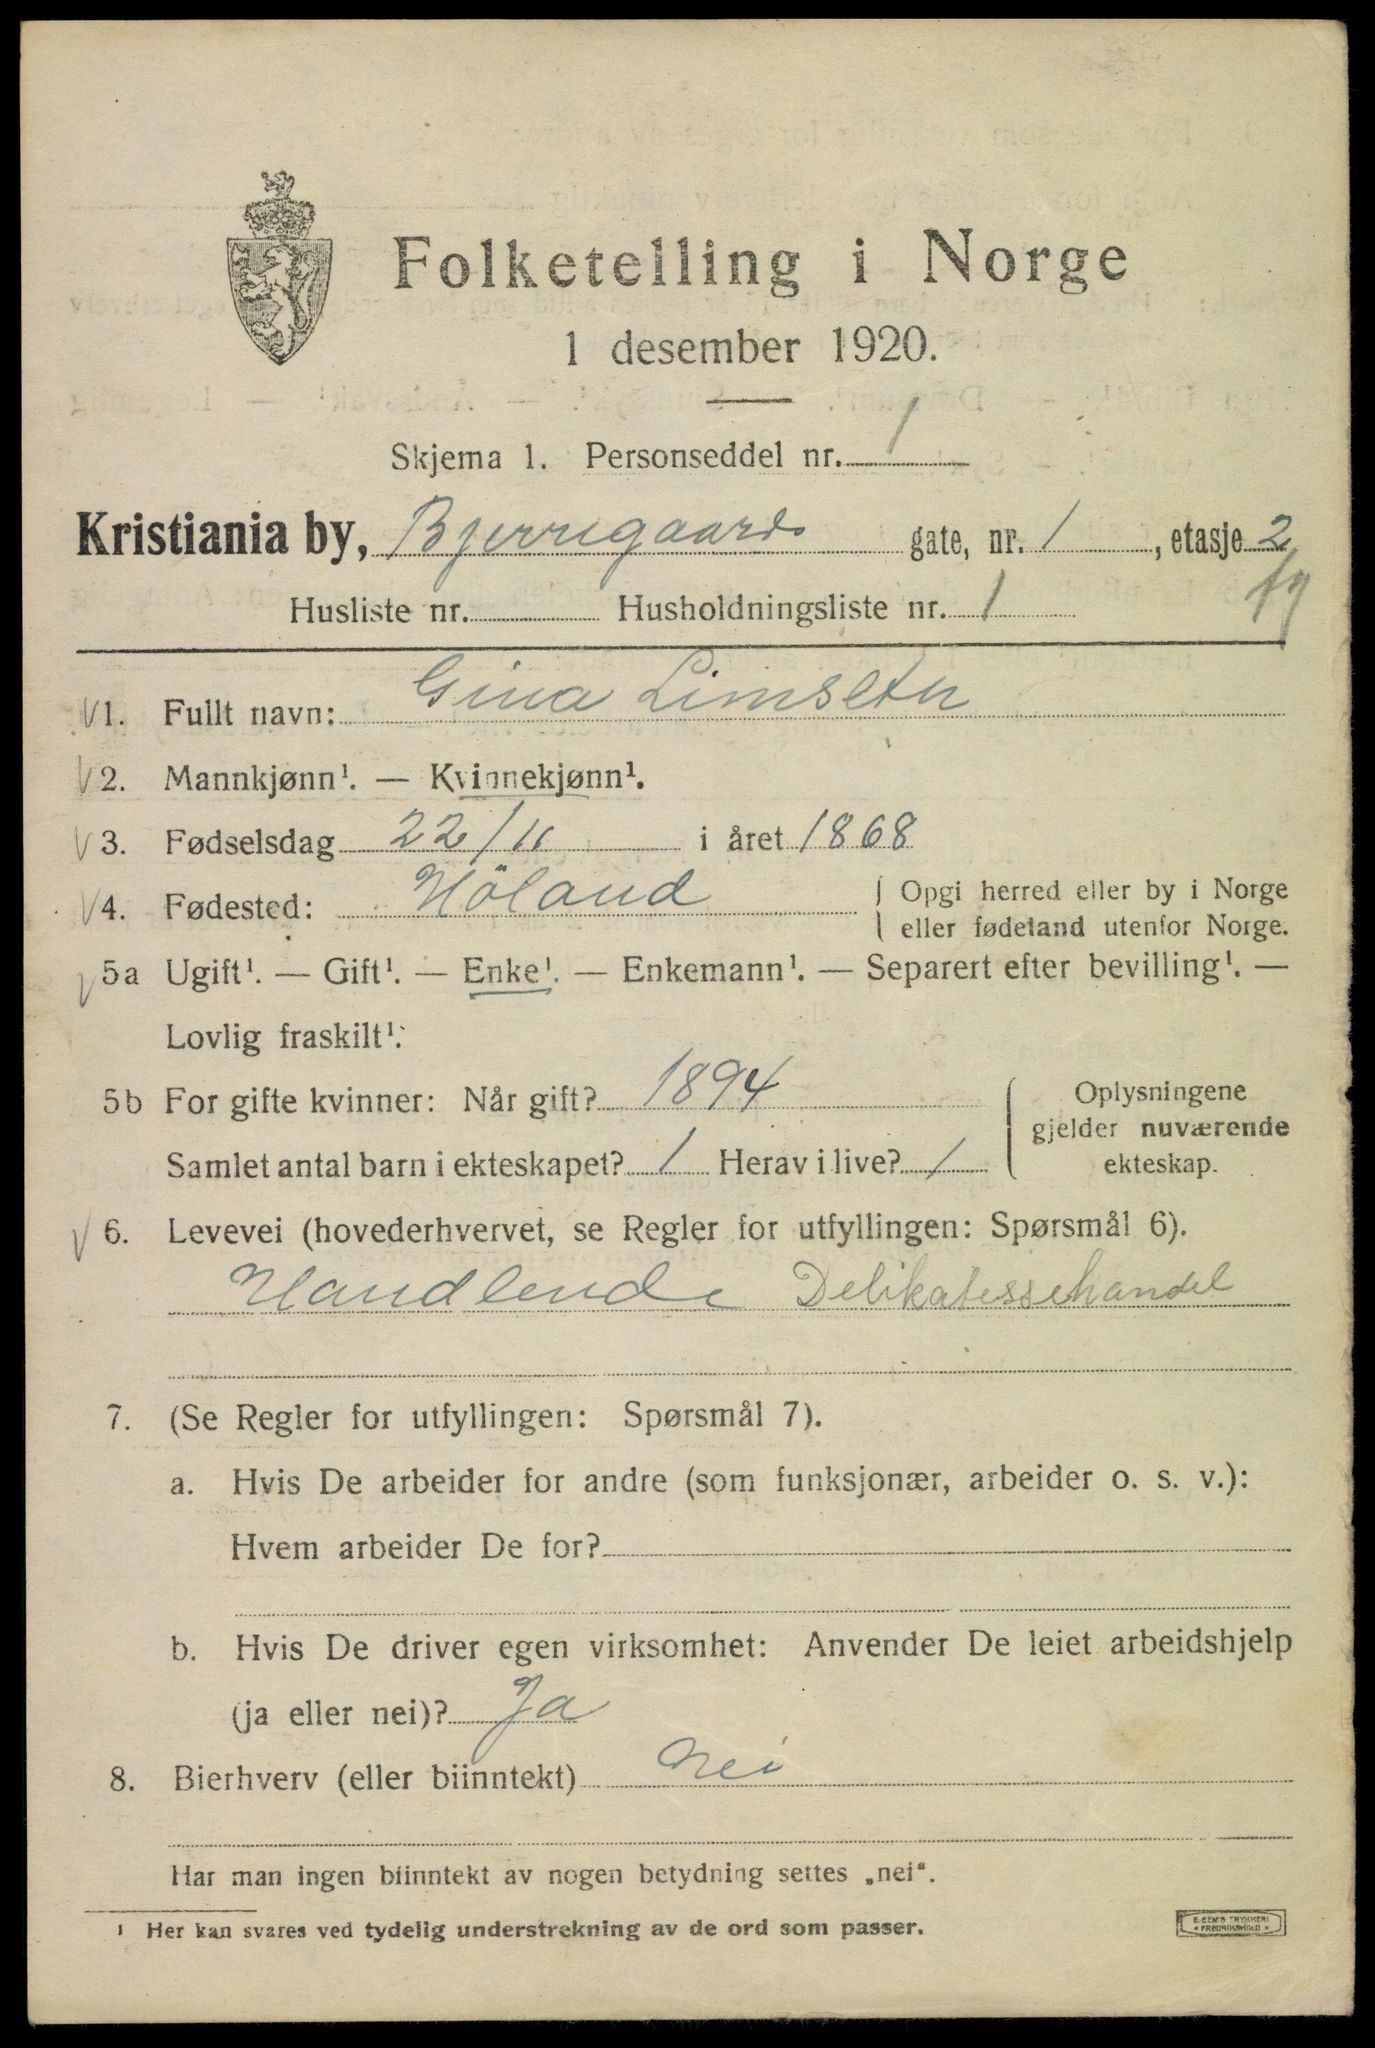 Folketelling i Norge
1 desember 1920.
Skjema 1. Personseddel nr. 1
Kristiania by, Bjerregaards gate, nr. 1, etasje 2
Husliste nr. Husholdningsliste nr. 1
√1. Fullt navn: Gina Limseth
√2. Mannkjønn¹. — Kvinnekjønn¹.
√3. Fødselsdag 22/11 i året 1868
√4. Fødested: Höland { Opgi herred eller by i Norge
eller fødeland utenfor Norge.
√5a Ugift¹. — Gift¹. — Enke¹. — Enkemann¹. — Separert efter bevilling¹. —
Lovlig fraskilt¹.
5b For gifte kvinner: Når gift? 1894
Samlet antal barn i ekteskapet? 1 Herav i live? 1
{ Oplysningene
gjelder nuværende
ekteskap.
√6. Levevei (hovederhvervet, se Regler for utfyllingen: Spørsmål 6).
Handlende Delikatessehandel
7. (Se Regler for utfyllingen: Spørsmål 7).
a. Hvis De arbeider for andre (som funksjonær, arbeider o. s. v.):
Hvem arbeider De for?
b. Hvis De driver egen virksomhet: Anvender De leiet arbeidshjelp
(ja eller nei)? Ja
8. Bierhverv (eller biinntekt) Nei
Har man ingen biinntekt av nogen betydning settes „nei“.
¹ Her kan svares ved tydelig understrekning av de ord som passer.
E. SEM'S TRYKKERI
• FREDRIKSHALD •